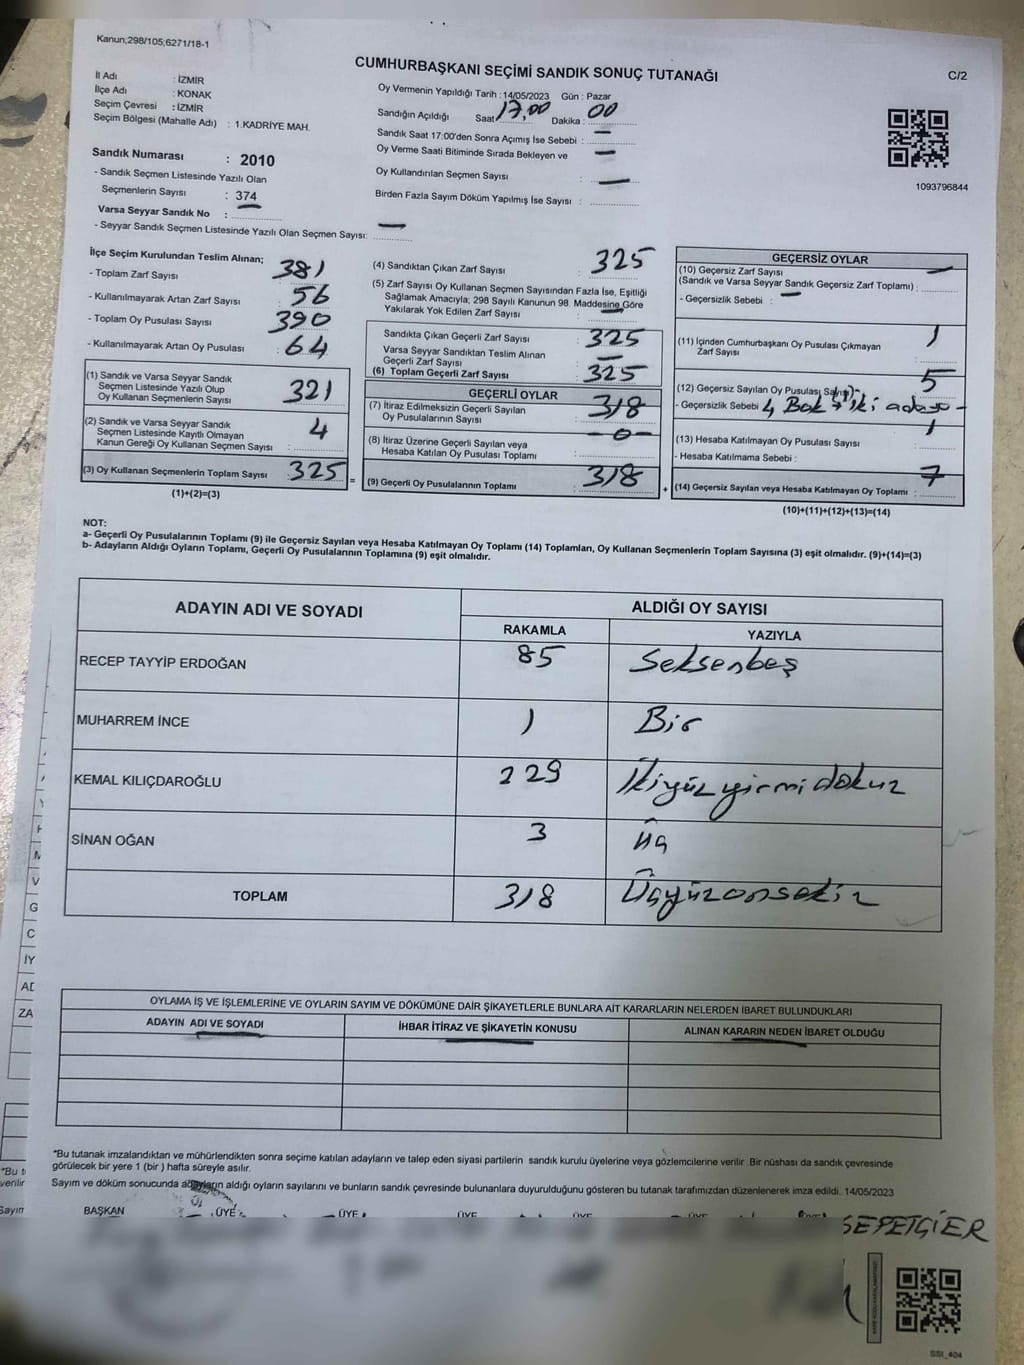 Kanun;298/105;6271/18-1
CUMHURBAŞKANI SEÇİMİ SANDIK SONUÇ TUTANAĞI
C/2
İl Adı : İZMİR
İlçe Adı : KONAK
Seçim Çevresi : İZMİR
Seçim Bölgesi (Mahalle Adı) : 1.KADRİYE MAH.
Sandık Numarası : 2010
- Sandık Seçmen Listesinde Yazılı Olan
Seçmenlerin Sayısı : 374
Varsa Seyyar Sandık No :
- Seyyar Sandık Seçmen Listesinde Yazılı Olan Seçmen Sayısı: —
Oy Vermenin Yapıldığı Tarih : 14/05/2023 Gün : Pazar
Sandığın Açıldığı Saat 17,00 Dakika : 00
Sandık Saat 17:00'den Sonra Açımış İse Sebebi : —
Oy Verme Saati Bitiminde Sırada Bekleyen ve —
Oy Kullandırılan Seçmen Sayısı : —
Birden Fazla Sayım Döküm Yapılmış İse Sayısı :
1093796844
İlçe Seçim Kurulundan Teslim Alınan;
- Toplam Zarf Sayısı : 381
- Kullanılmayarak Artan Zarf Sayısı : 56
- Toplam Oy Pusulası Sayısı : 390
- Kullanılmayarak Artan Oy Pusulası : 64
(1) Sandık ve Varsa Seyyar Sandık
Seçmen Listesinde Yazılı Olup
Oy Kullanan Seçmenlerin Sayısı : 321
(2) Sandık ve Varsa Seyyar Sandık
Seçmen Listesinde Kayıtlı Olmayan
Kanun Gereği Oy Kullanan Seçmen Sayısı : 4
(3) Oy Kullanan Seçmenlerin Toplam Sayısı : 325 =
(1)+(2)=(3)
(4) Sandıktan Çıkan Zarf Sayısı : 325
(5) Zarf Sayısı Oy Kullanan Seçmen Sayısından Fazla İse, Eşitliği
Sağlamak Amacıyla; 298 Sayılı Kanunun 98. Maddesine Göre
Yakılarak Yok Edilen Zarf Sayısı : —
Sandıkta Çıkan Geçerli Zarf Sayısı : 325
Varsa Seyyar Sandıktan Teslim Alınan
Geçerli Zarf Sayısı : —
(6) Toplam Geçerli Zarf Sayısı : 325
GEÇERLİ OYLAR
(7) İtiraz Edilmeksizin Geçerli Sayılan
Oy Pusulalarının Sayısı : 318
(8) İtiraz Üzerine Geçerli Sayılan veya
Hesaba Katılan Oy Pusulası Toplamı : -0-
(9) Geçerli Oy Pusulalarının Toplamı : 318 +
GEÇERSİZ OYLAR
(10) Geçersiz Zarf Sayısı
(Sandık ve Varsa Seyyar Sandık Geçersiz Zarf Toplamı) : —
- Geçersizlik Sebebi : —
(11) İçinden Cumhurbaşkanı Oy Pusulası Çıkmayan
Zarf Sayısı : 1
(12) Geçersiz Sayılan Oy Pusulası Sayısı : 5
- Geçersizlik Sebebi 4
(13) Hesaba Katılmayan Oy Pusulası Sayısı : 1
- Hesaba Katılmama Sebebi :
(14) Geçersiz Sayılan veya Hesaba Katılmayan Oy Toplamı : 7
(10)+(11)+(12)+(13)=(14)
NOT:
a- Geçerli Oy Pusulalarının Toplamı (9) ile Geçersiz Sayılan veya Hesaba Katılmayan Oy Toplamı (14) Toplamları, Oy Kullanan Seçmenlerin Toplam Sayısına (3) eşit olmalıdır. (9)+(14)=(3)
b- Adayların Aldığı Oyların Toplamı, Geçerli Oy Pusulalarının Toplamına (9) eşit olmalıdır.
ADAYIN ADI VE SOYADI ALDIĞI OY SAYISI
RAKAMLA YAZIYLA
RECEP TAYYİP ERDOĞAN 85 Seksenbeş
MUHARREM İNCE 1 Bir
KEMAL KILIÇDAROĞLU 229 İkiyüzyirmidokuz
SİNAN OĞAN 3 Üç
TOPLAM 318 Üçyüzonsekiz
OYLAMA İŞ VE İŞLEMLERİNE VE OYLARIN SAYIM VE DÖKÜMÜNE DAİR ŞİKAYETLERLE BUNLARA AİT KARARLARIN NELERDEN İBARET BULUNDUKLARI
ADAYIN ADI VE SOYADI İHBAR İTİRAZ VE ŞİKAYETİN KONUSU ALINAN KARARIN NEDEN İBARET OLDUĞU
*Bu tutanak imzalandıktan ve mühürlendikten sonra seçime katılan adayların ve talep eden siyasi partilerin sandık kurulu üyelerine veya gözlemcilerine verilir .Bir nüshası da sandık çevresinde
görülecek bir yere 1 (bir ) hafta süreyle asılır.
Sayım ve döküm sonucunda adayların aldığı oyların sayılarını ve bunların sandık çevresinde bulunanlara duyurulduğunu gösteren bu tutanak tarafımızdan düzenlenerek imza edildi. 14/05/2023
BAŞKAN ÜYE ÜYE ÜYE ÜYE ÜYE ÜYE
SEPETÇİER
SSI_404